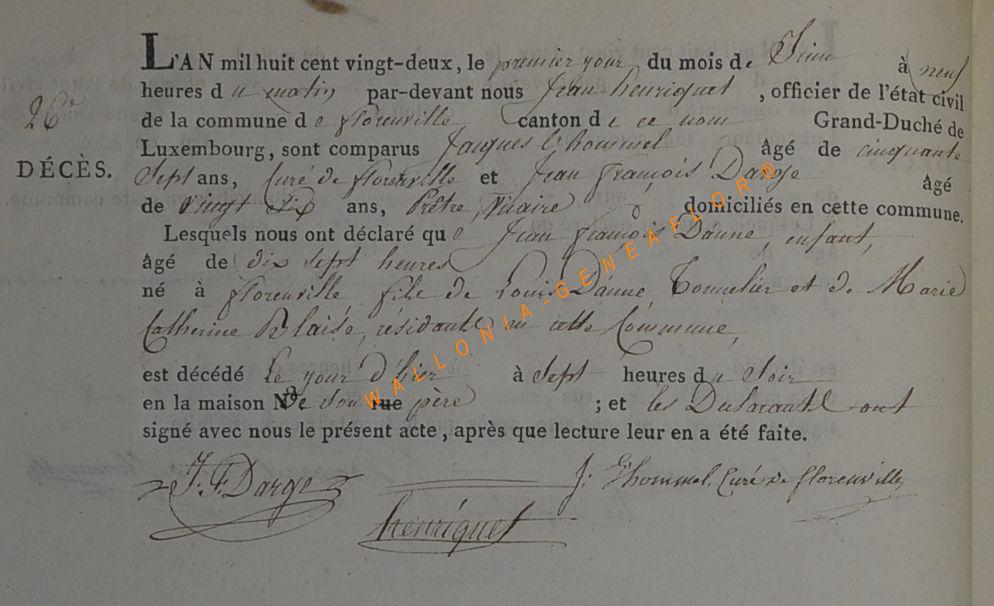 L'AN mil huit cent vingt-deux, le premier jour du mois de Juin à neuf
heures du matin par-devant nous Jean henriquet, officier de l'état civil
26e
de la commune de florenville canton de ce nom Grand-Duché de
Luxembourg, sont comparus Jacques L'hommel âgé de cinquante
DÉCÈS.
Sept ans, Curé de florenville et Jean françois Darge âgé
de vingt six ans, Prêtre, Vicaire domiciliés en cette commune.
Lesquels nous ont déclaré que Jean françois Danne, enfant,
âgé de dix sept heures
né à florenville fils de Louis Danne, Tonnelier et de Marie
Catherine Blaise, résidants en cette Commune,
est décédé Le jour d'hier à Sept heures du Soir
en la maison de son rue père ; et les Déclarants ont
signé avec nous le présent acte, après que lecture leur en a été faite.
J. F. Darge J. L'hommel, Curé de florenville
henriquet
WALLONIA-GENEAFLOR©